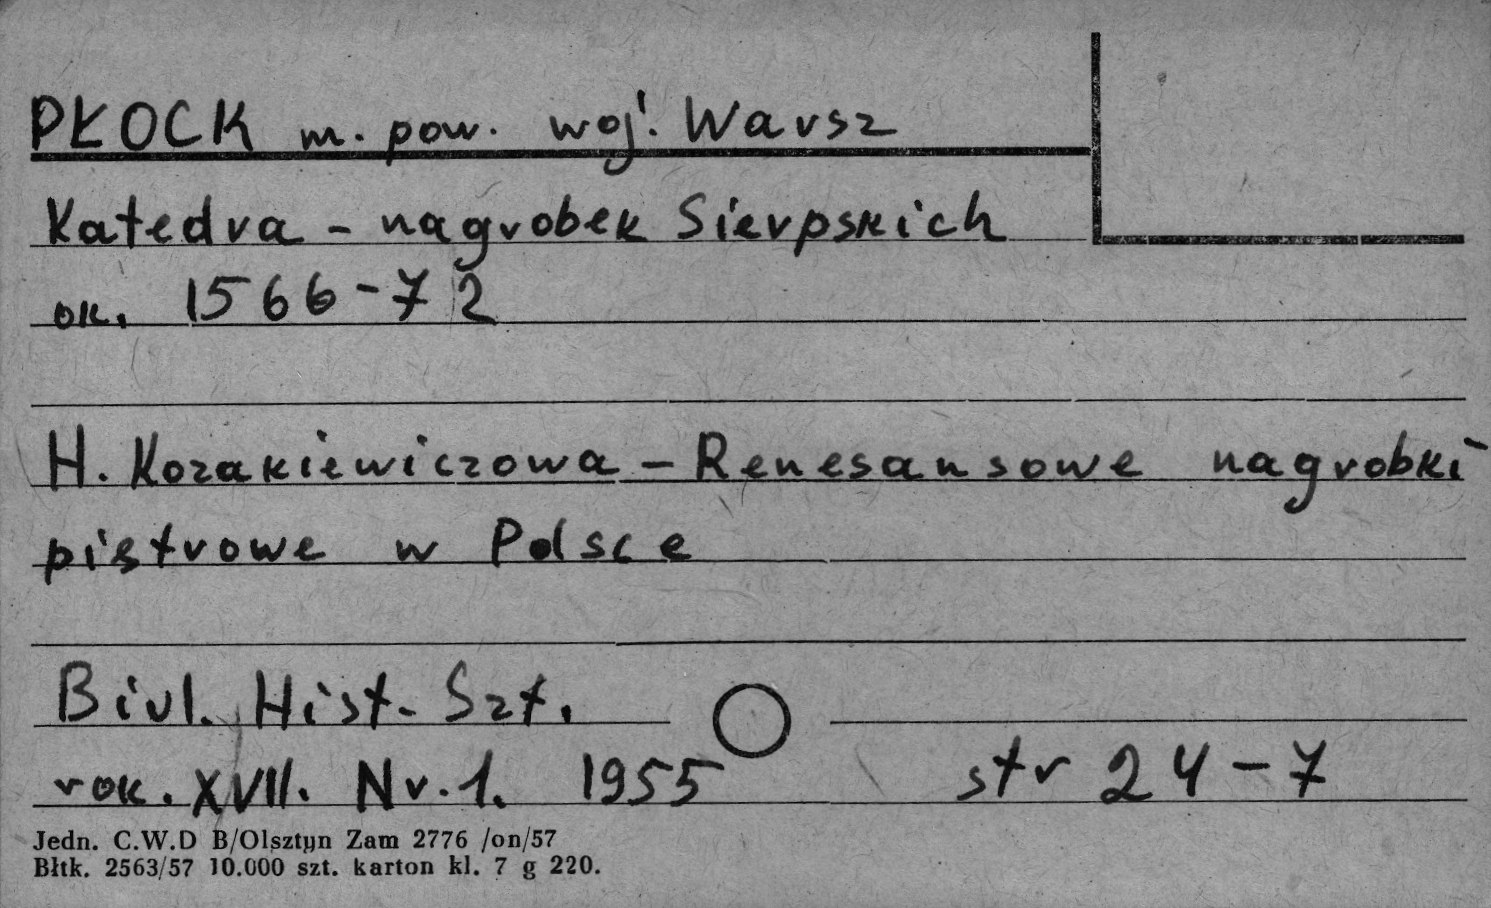 PŁOCK m. pow. woj. Warsz
Katedra - nagrobek Sierpskich
ok. 1566-72
H. Kozakiewiczowa - Renesansowe nagrobki
piętrowe w Polsce
Biul. Hist. Szt.
rok. XVII. Nr. 1. 1955 str 24-7
Jedn. C.W.D B/Olsztyn Zam 2776 /on/57
Błtk. 2563/57 10.000 szt. karton kl. 7 g 220.